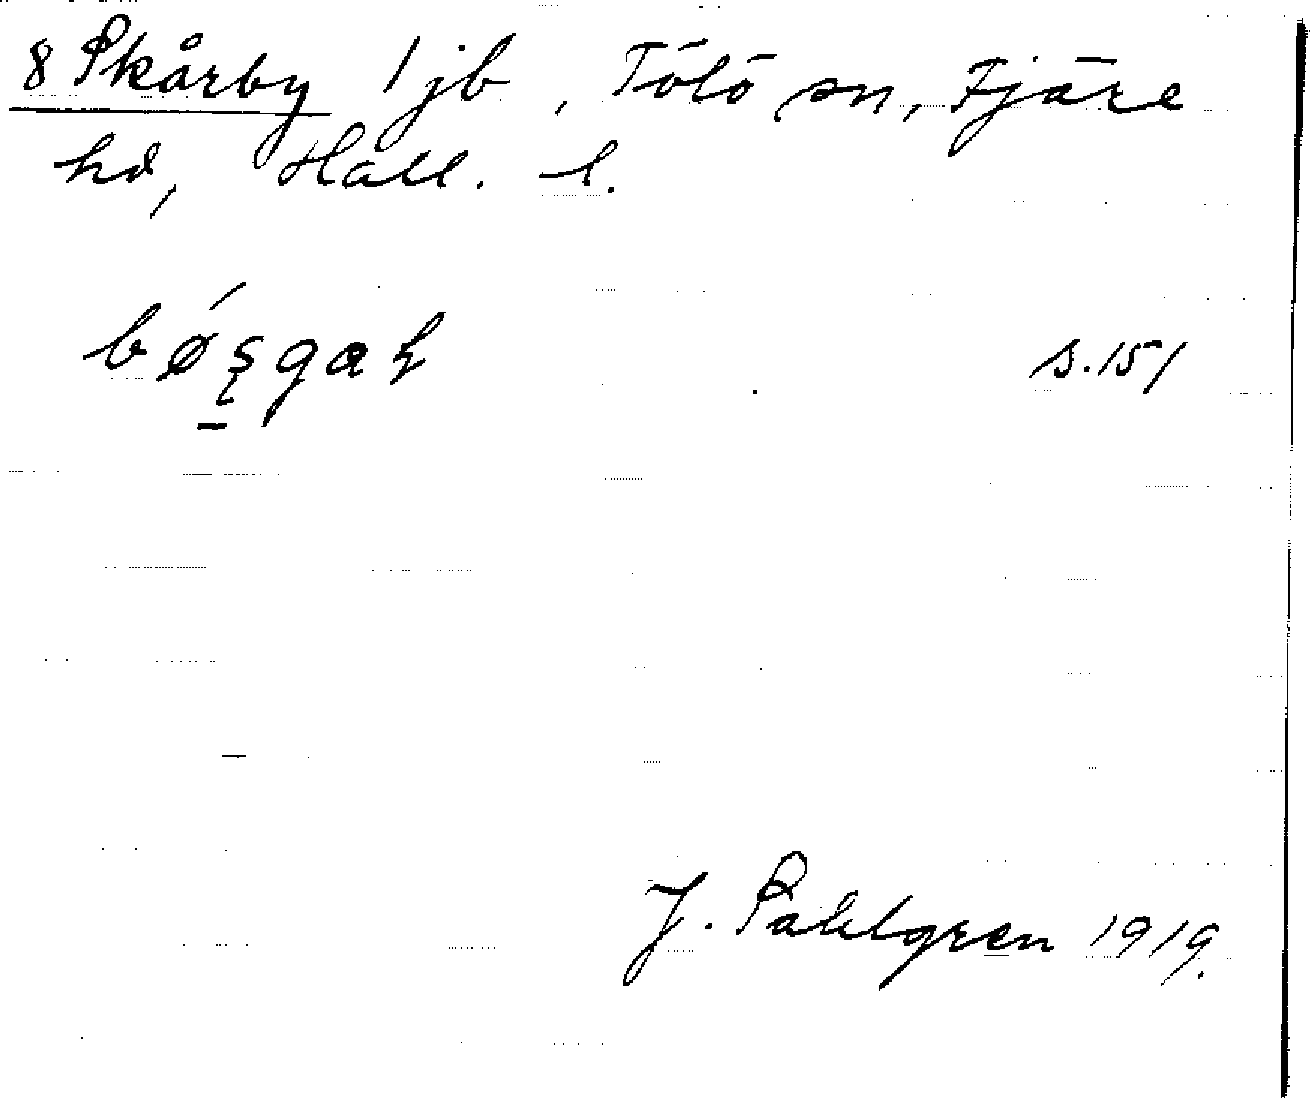 8 Skårby 1 jb, Tölö sn, Fjäre
hd, Hall. l.
s. 151
J. Sahlgren 1919.